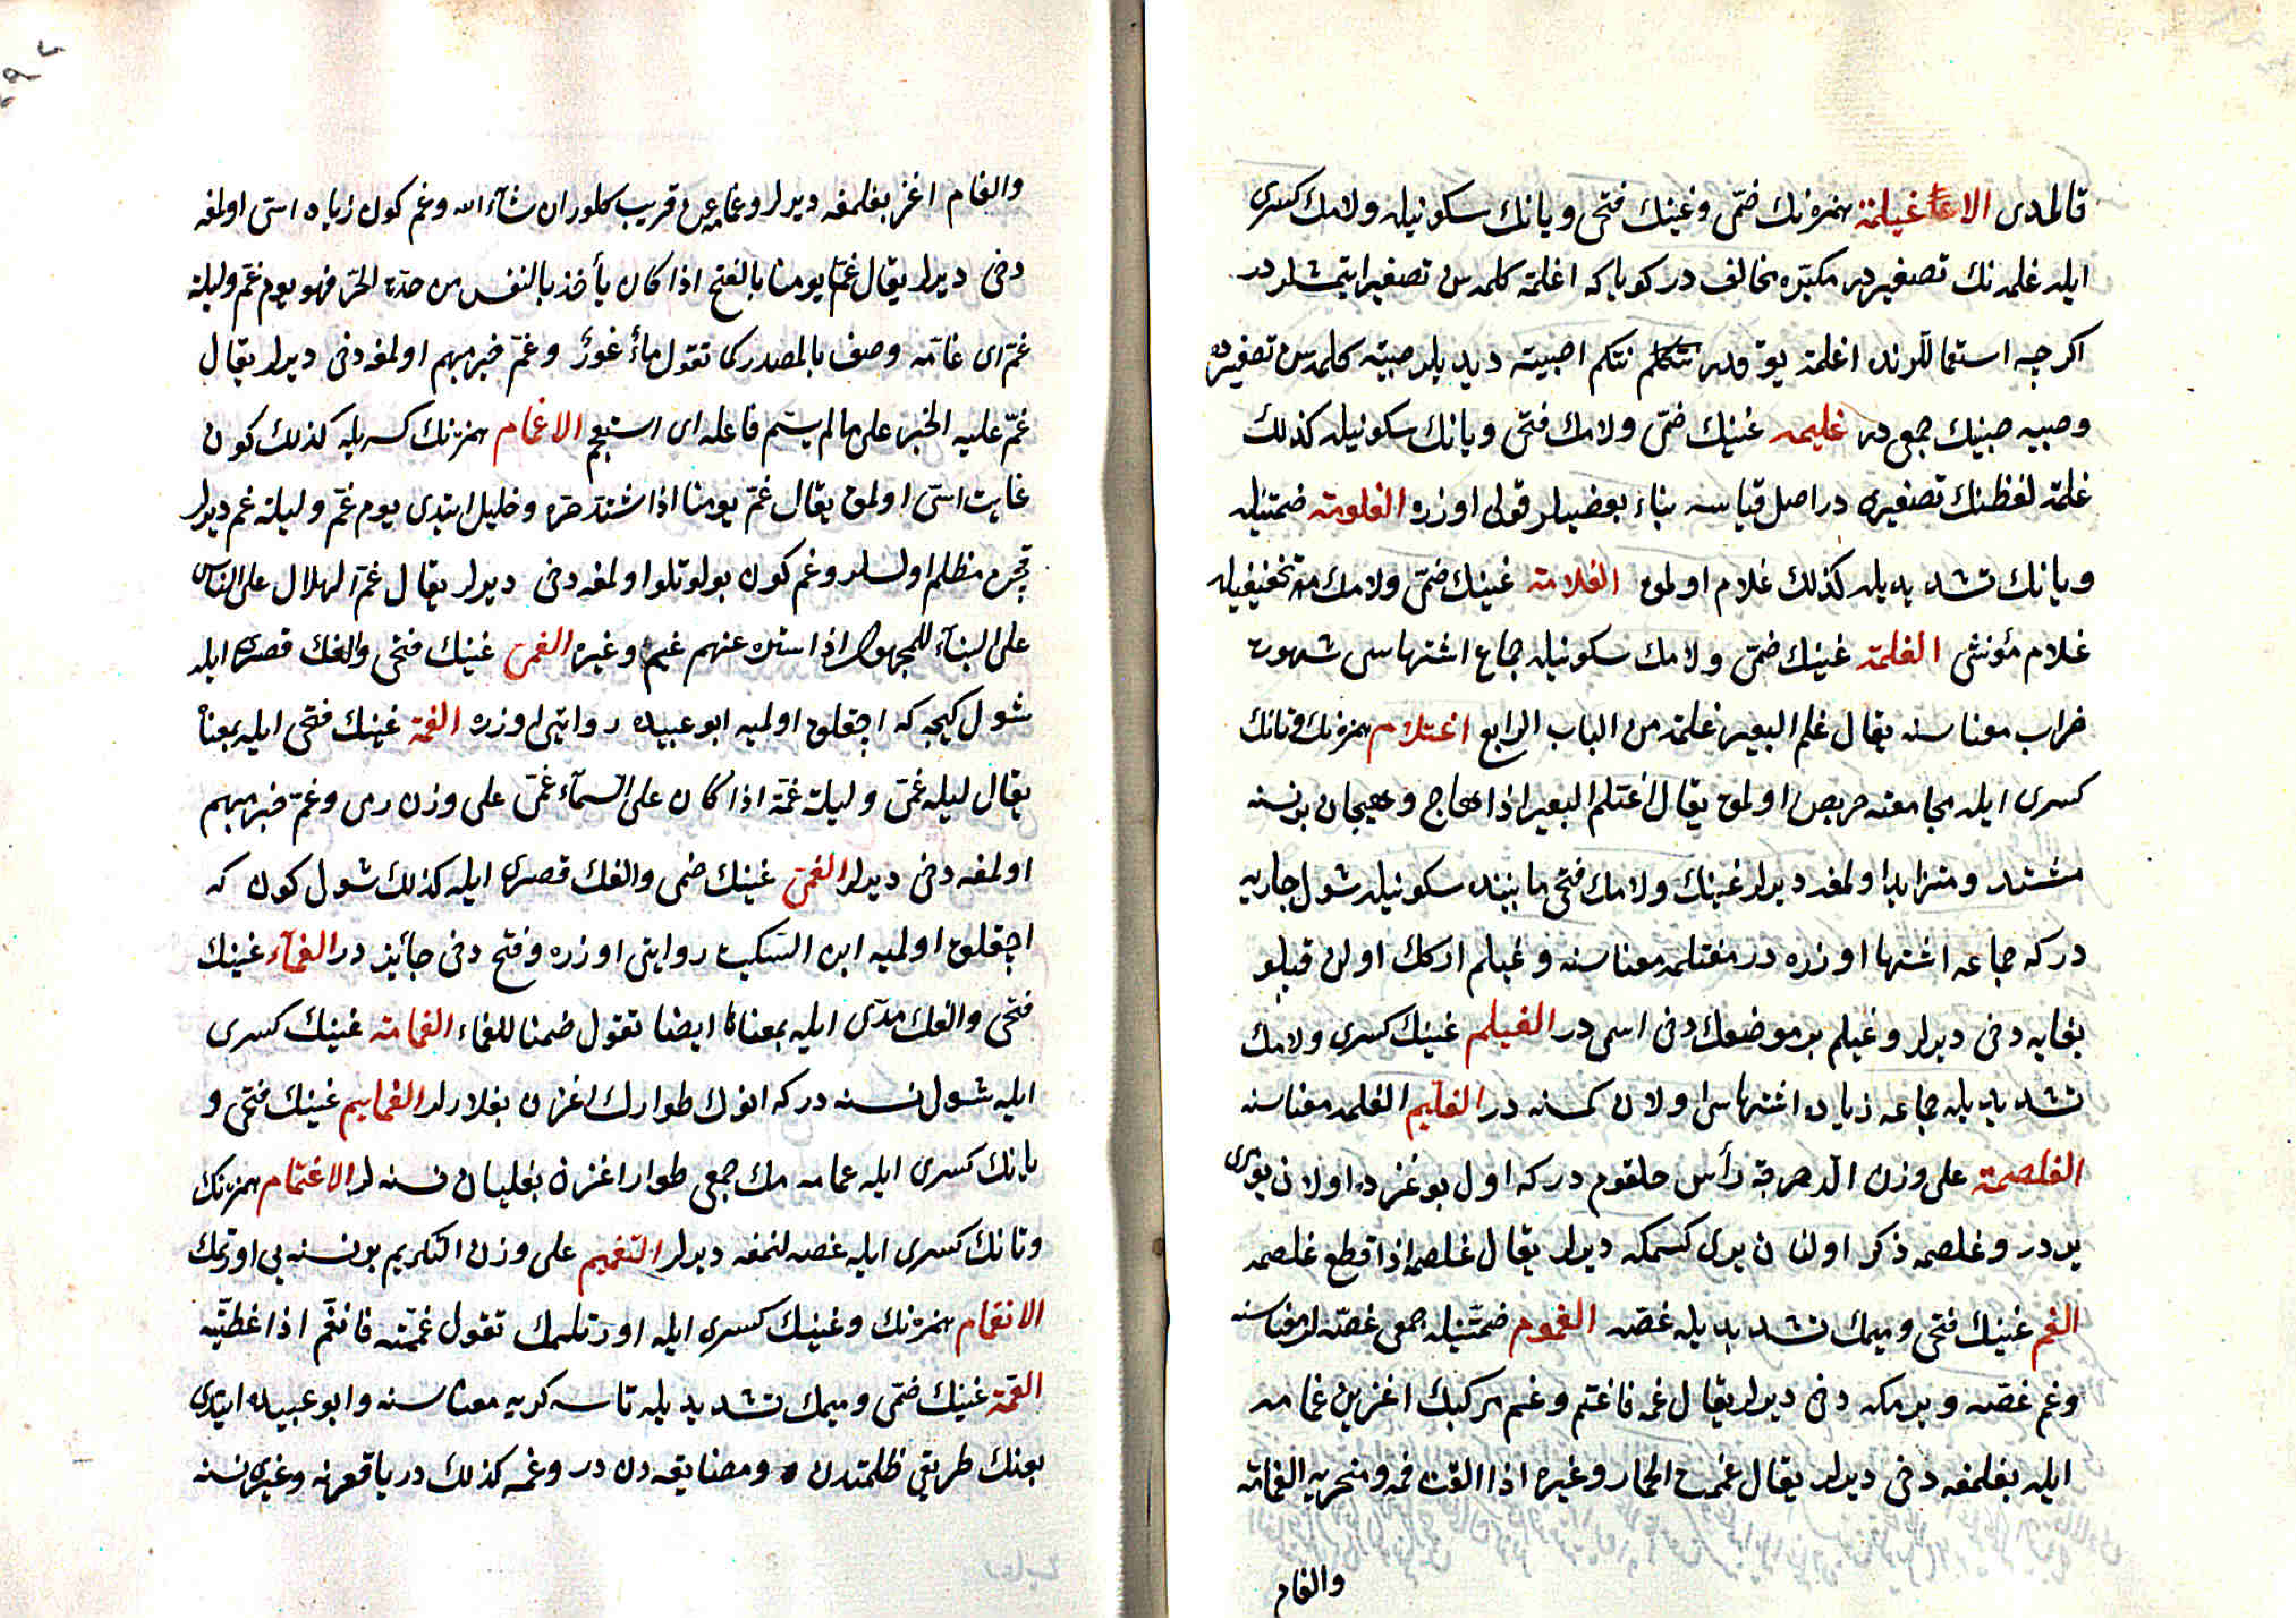 قالمدى الاغيلمة همزه نك ضمّى وغينك فتحى ويانك سكونيله ولامك كسرى
ايله غلمه نك تصغيريدر مكبّره مخالف در كويا كه اغلمة كلمه سن تصغير ايتمشلر در
اكرچه استعماللرنده اغلمة يوقدر نتكم اصبية ديديلر صبية كلمه سن تصغيرده
وصبيه صبينك جمعى در غليمه غينك ضمّى ولامك فتحى ويانك سكونيله كذلك
غلمة لفظنك تصغيرى در اصل قياسه بناء بعضيلر قولى اوزره الغلومة ضمتيله
ويانك تشديديله كذلك غلام اولمق الغلامة غينك ضمّى ولامك تخفيفيله
غلام مؤنثى الغلمة غينك ضمّى ولامك سكونيله جماع اشتهاسى شهوت
ضراب معناسنه يقال غلم البعير غلمة من الباب الرابع اغتلام همزه نك وتانك
كسرى ايله مجامعته حريص اولمق يقال اغتلم البعير اذا هاج وهيجان بر نسنه
مشتد ومتزايد اولمغه ديرلر غينك ولامك فتحى مابينده سكونيله شول جاريه
در كه جماعه اشتها اوزره در مغتلمه معناسنه وغيلم اركك اولن قپلو
بغايه دخى ديرلر وغيلم بر موضعك دخى اسمى در الغيلم غينك كسرى ولامك
تشديديله جماعه زياده اشتهاسى اولان كمسنه در الغليم الغلمه معناسنه
الغلصمة على وزن الدحرجة رأس حلقوم در كه اول بوغزده اولان يوری
يردر وغلصمه ذكر اولنان يرى كسمكه ديرلر يقال غلصمه اذا قطع غلصمه
الغم غينك فتحى وميمك تشديديله غصّه الغموم ضمّتيله جمعى غصّه لر معناسنه
وغم غصّه ويرمكه دخى ديرلر يقال غمه فاغتم وغم مركبك اغزين غمامه
ايله بغلمغه دخى ديرلر يقال غممت الحمار وغيره اذا القت فمه ومنخريه الغمامة
والغمام
والغمام اغز بغلمغه ديرلر وغمامه عن قريب كلور ان شاء الله وغم كون زياده اسّى اولمغه
دخى ديرلر يقال غمّ يومنا بالفتح اذا كان يأخذ بالنفس من حدّة الحرّ فهو يوم غمّ وليلة
غمّ اى غامّه وصف بالمصدر كما تقول ماء غور وغمّ خبر مبهم اولمغه دخى ديرلر يقال
غمّ عليه الخبر على ما لم يسمّ فاعله اى استعجم الاغمام همزه نك كسريله كذلك كون
غايت اسّى اولمق يقال اغمّ يومنا اذا اشتدّ حرّه وخليل ايتدى يوم غمّ وليلة غم ديرلر
قچن مظلم اولسلر وغم كون بولوتلو اولمغه دخى ديرلر يقال غمّ الهلال على الناس
على البناء للمجهول اذا ستره عنهم غيم وغيره الغمى غينك فتحى والفك قصرى ايله
شول كيجه كه اچقلق اوليه ابو عبيده روايتى اوزره الغمة غينك فتحى ايله بمعناه
يقال ليله غمى وليلة غمّة اذا كان على السماء غمى على وزن رمى وغمّ خبر مبهم
اولمغه دخى ديرلر الغمى غينك ضمى والفك قصرى ايله كذلك شول كون كه
اچقلق اوليه ابن السكيت روايتى اوزره وفتح دخى جائز در الغمّاء غينك
فتحى والفك مدّى ايله بمعناه ايضا تقول صمنا للغماء الغمامة غينك كسرى
ايله شول نسنه در كه انوك طوارك اغزن بغلارلر الغمايم غينك فتحى و
يانك كسرى ايله غمامه نك جمعى طوار اغزن بغليان نسنه لر الاغتمام همزه نك
وتانك كسرى ايله غصه لنمغه ديرلر التغميم على وزن التكريم بر نسنه يى اورتمك
الانغمام همزه نك وغينك كسرى ايله اورتلمك تقول غممته فانغمّ اذا غطيّته
الغمّة غينك ضمّى وميمك تشديديله تاسه كربه معناسنه وابو عبيده ايتدى
بونك طريقى ظلمتدن ومضايقه دن در وغمه كذلك درياقعرنه وغيرى نسنه